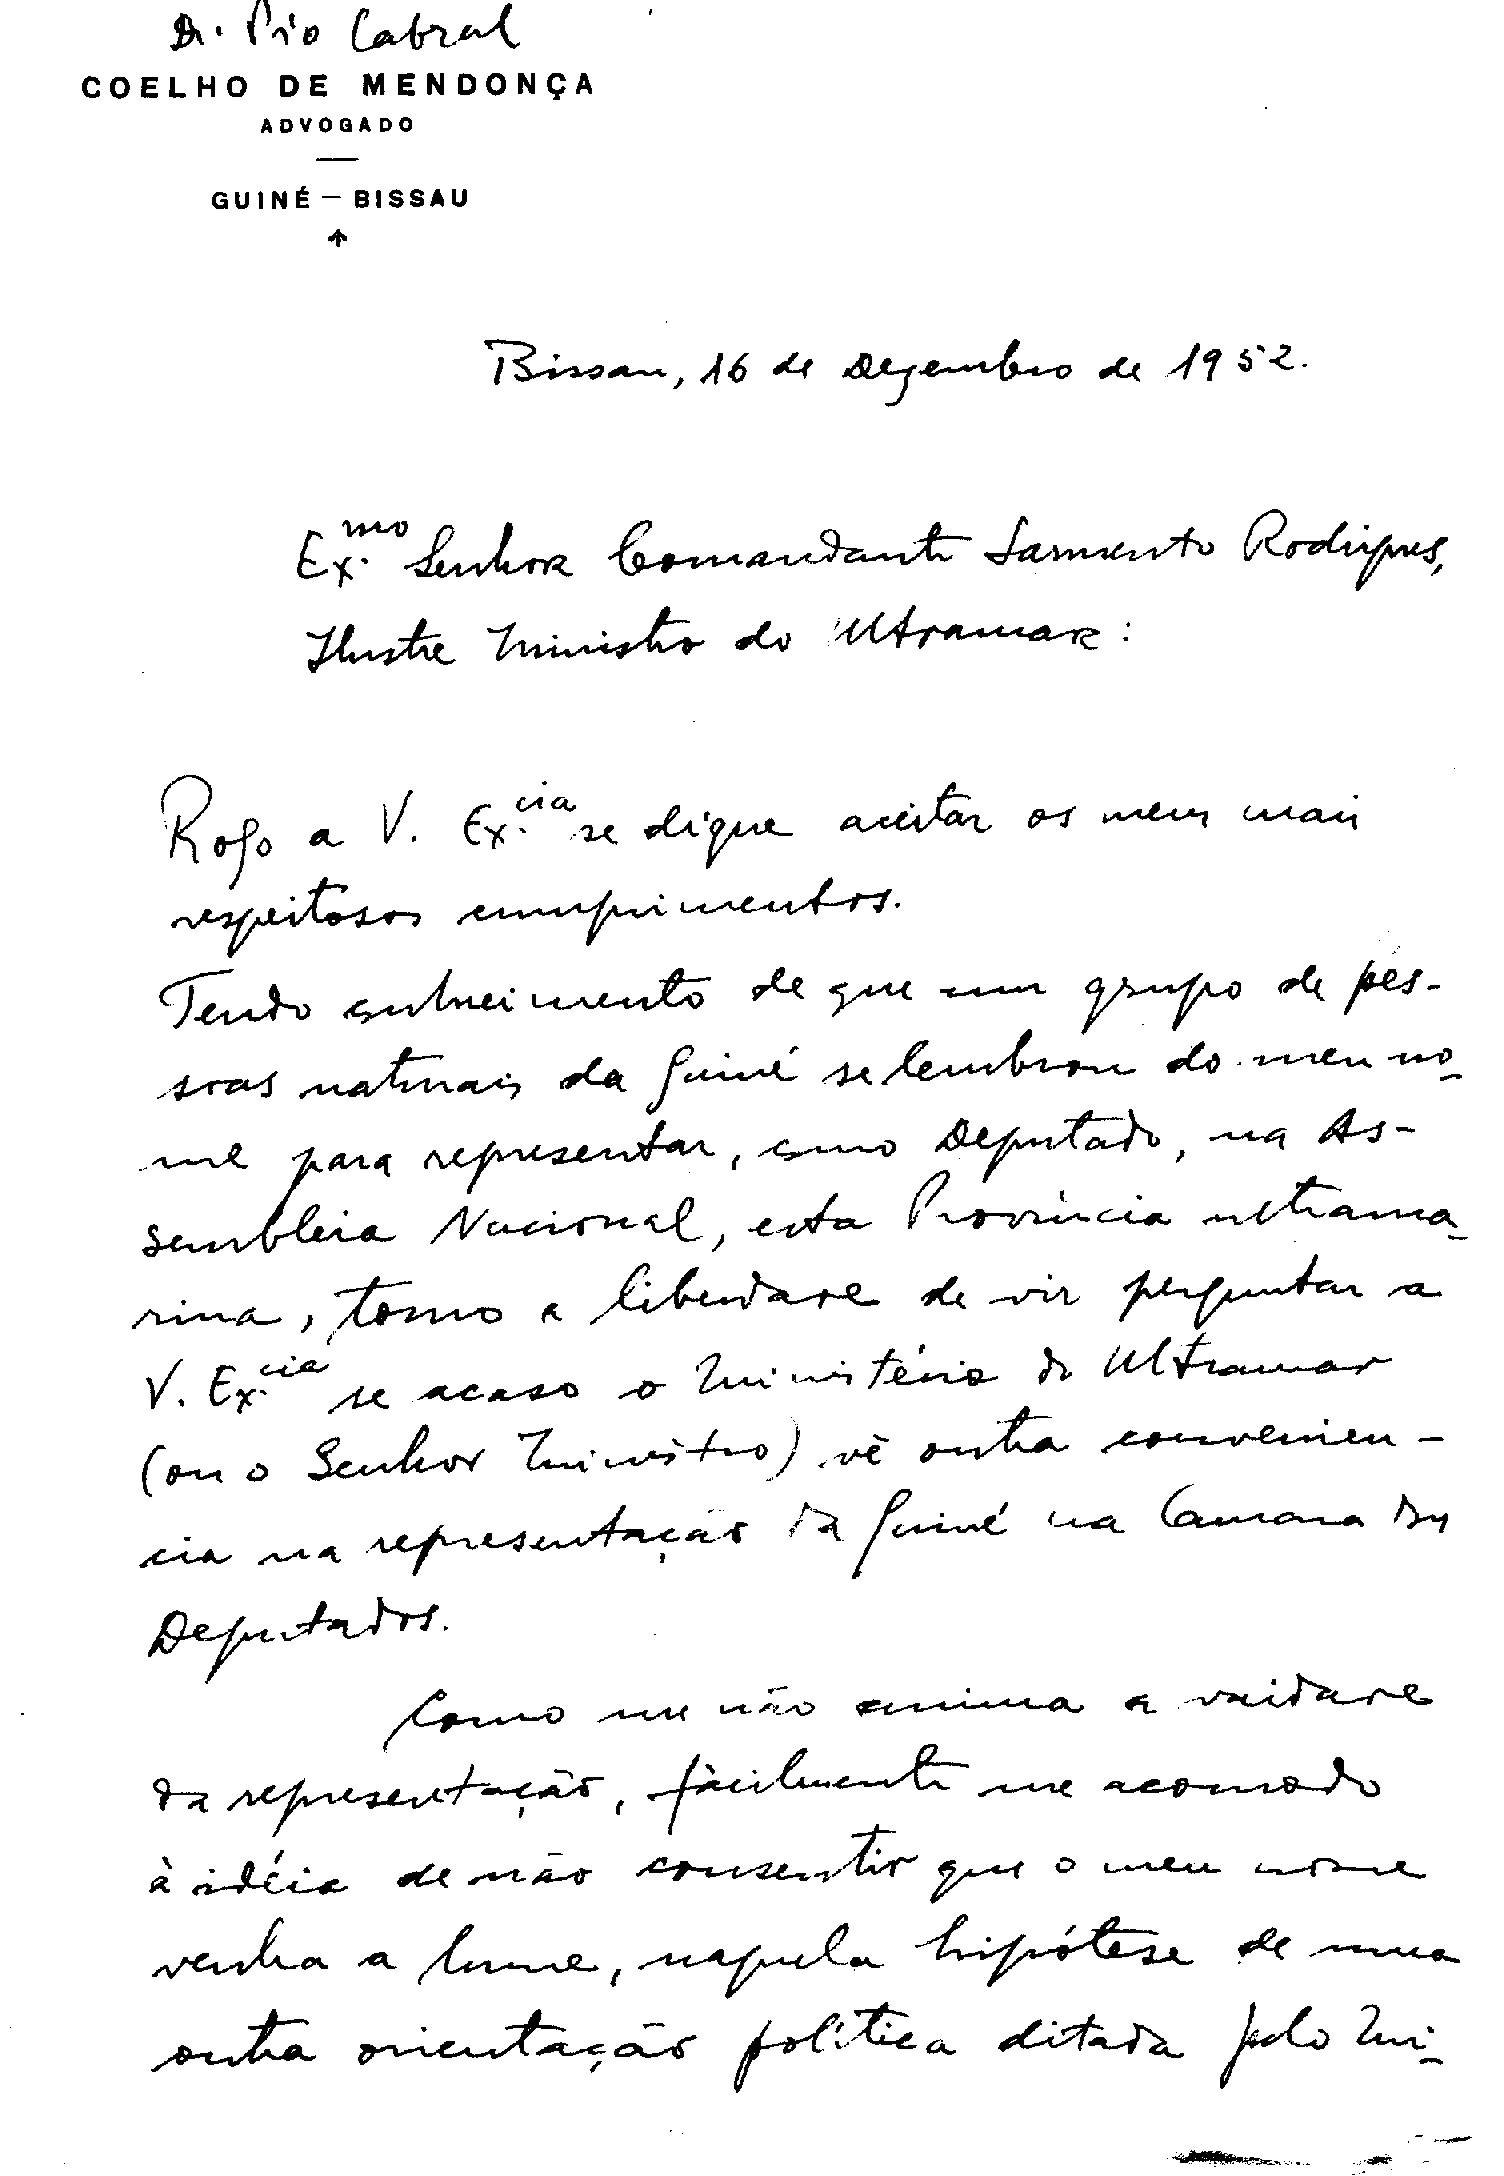 Dr. Pio Cabral
COELHO DE MENDONÇA
ADVOGADO
GUINÉ — BISSAU
Bissau, 16 de Dezembro de 1952.
Ex.mo Senhor Comandante Sarmento Rodrigues,
Ilustre Ministro do Ultramar:
Rogo a V. Ex.cia se digne aceitar os meus mais
respeitosos cumprimentos.
Tendo conhecimento de que um grupo de pes-
soas naturais da Guiné se lembrou do meu no-
me para representar, como Deputado, na As-
sembleia Nacional, esta Província ultrama-
rina, tomo a liberdade de vir perguntar a
V. Ex.cia se acaso o Ministério do Ultramar
(ou o Senhor Ministro) vê outra conveniên-
cia na representação da Guiné na Camara dos
Deputados.
Como me não anima a vaidade
da representação, fàcilmente me acomodo
à idéia de não consentir que o meu nome
venha a lume, naquela hipótese de uma
outra orientação política ditada pelo Mi-